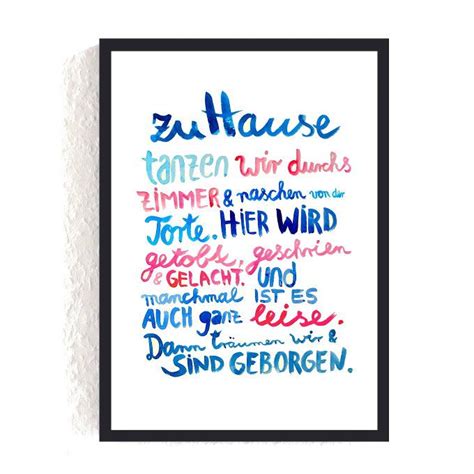 zuHause
tanzen wir durchs
ZiMMER & naschen von der
Torte. HiER WiRD
getobt, geschrien
& GELACHT. und
manchmal IST ES
AUCH ganz leise.
Dann träumen wir &
SiND GEBORGEN.